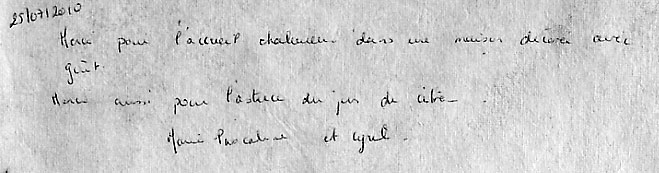 25/07/2010
Merci pour l'accueil chaleureux dans une maison décorée avec
goût.
Merci aussi pour l'astuce du jus de citron.
Marie Pascaline et Cyril.